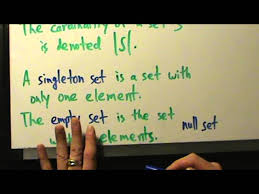 The cardinality of a set S
is denoted |S|.
A singleton set is a set with
only one element.
The empty set is the set
null set
elements.